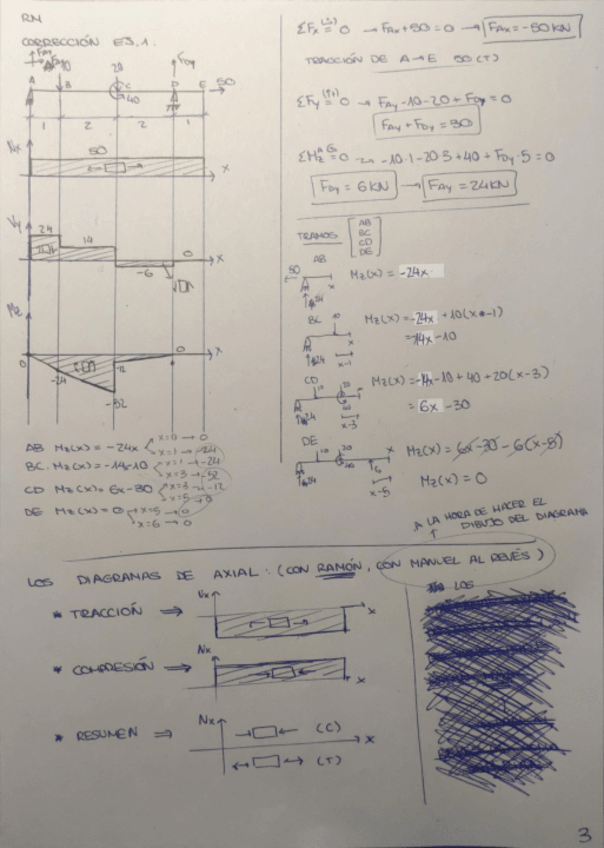 RM
CORRECCIÓN EJ.1.
10
20
F_Dy
A
B
C
D
E
50
40
1
2
2
1
Nx
50
x
Vy
24
14
0
x
-6
Mz
0
-24
-12
-52
0
x
AB Mz(x) = -24x
x=0 → 0
x=1 → -24
BC. Mz(x) = -14-10
x=1 → -24
x=3 → -52
CD Mz(x) = 6x-30
x=3 → -12
x=5 → 0
DE Mz(x) = 0
x=5 → 0
x=6 → 0
ΣFx = 0 → F_Ax + 50 = 0 → F_Ax = -50 KN
TRACCIÓN DE A→E 50 (T)
ΣFy = 0 → F_Ay - 10 - 20 + F_Dy = 0
F_Ay + F_Dy = 30
ΣMz = 0 → -10·1 - 20·5 + 40 + F_Dy·5 = 0
F_Dy = 6 KN → F_Ay = 24 KN
TRAMOS
AB
BC
CD
DE
AB
50
24
x
Mz(x) = -24x
BC
10
24
x
x-1
Mz(x) = -24x + 10(x-1)
= -14x - 10
CD
10
20
24
x
x-3
Mz(x) = -14x - 10 + 40 + 20(x-3)
= 6x - 30
DE
10
20
40
24
6
x
x-5
Mz(x) = 6x - 30 - 6(x-5)
Mz(x) = 0
A LA HORA DE HACER EL
DIBUJO DEL DIAGRAMA
LOS DIAGRAMAS DE AXIAL: (CON RAMÓN, CON MANUEL AL REVÉS)
* TRACCIÓN ⇒
Nx
x
* COMPRESIÓN ⇒
Nx
x
* RESUMEN ⇒
Nx
(C)
x
(T)
LOS
3